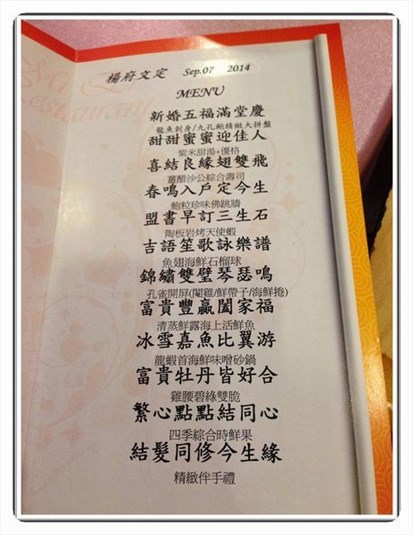 楊府文定 Sep.07 2014
MENU
新婚五福滿堂慶
龍魚刺身/九孔鮑精緻大拼盤
甜甜蜜蜜迎佳人
紫米甜湯+優格
喜結良緣翅雙飛
薑醋沙公綜合壽司
春鳴入戶定今生
鮑粒珍味佛跳牆
盟書早訂三生石
陶板岩烤天使蝦
吉語笙歌詠樂譜
魚翅海鮮石榴球
錦繡雙璧琴瑟鳴
孔雀開屏(閹雞/鮮帶子/海鮮捲)
富貴豐贏闔家福
清蒸鮮露海上活鮮魚
冰雪嘉魚比翼游
龍蝦首海鮮味噌砂鍋
富貴牡丹皆好合
雞腰碧綠雙脆
繫心點點結同心
四季綜合時鮮果
結髮同修今生緣
精緻伴手禮